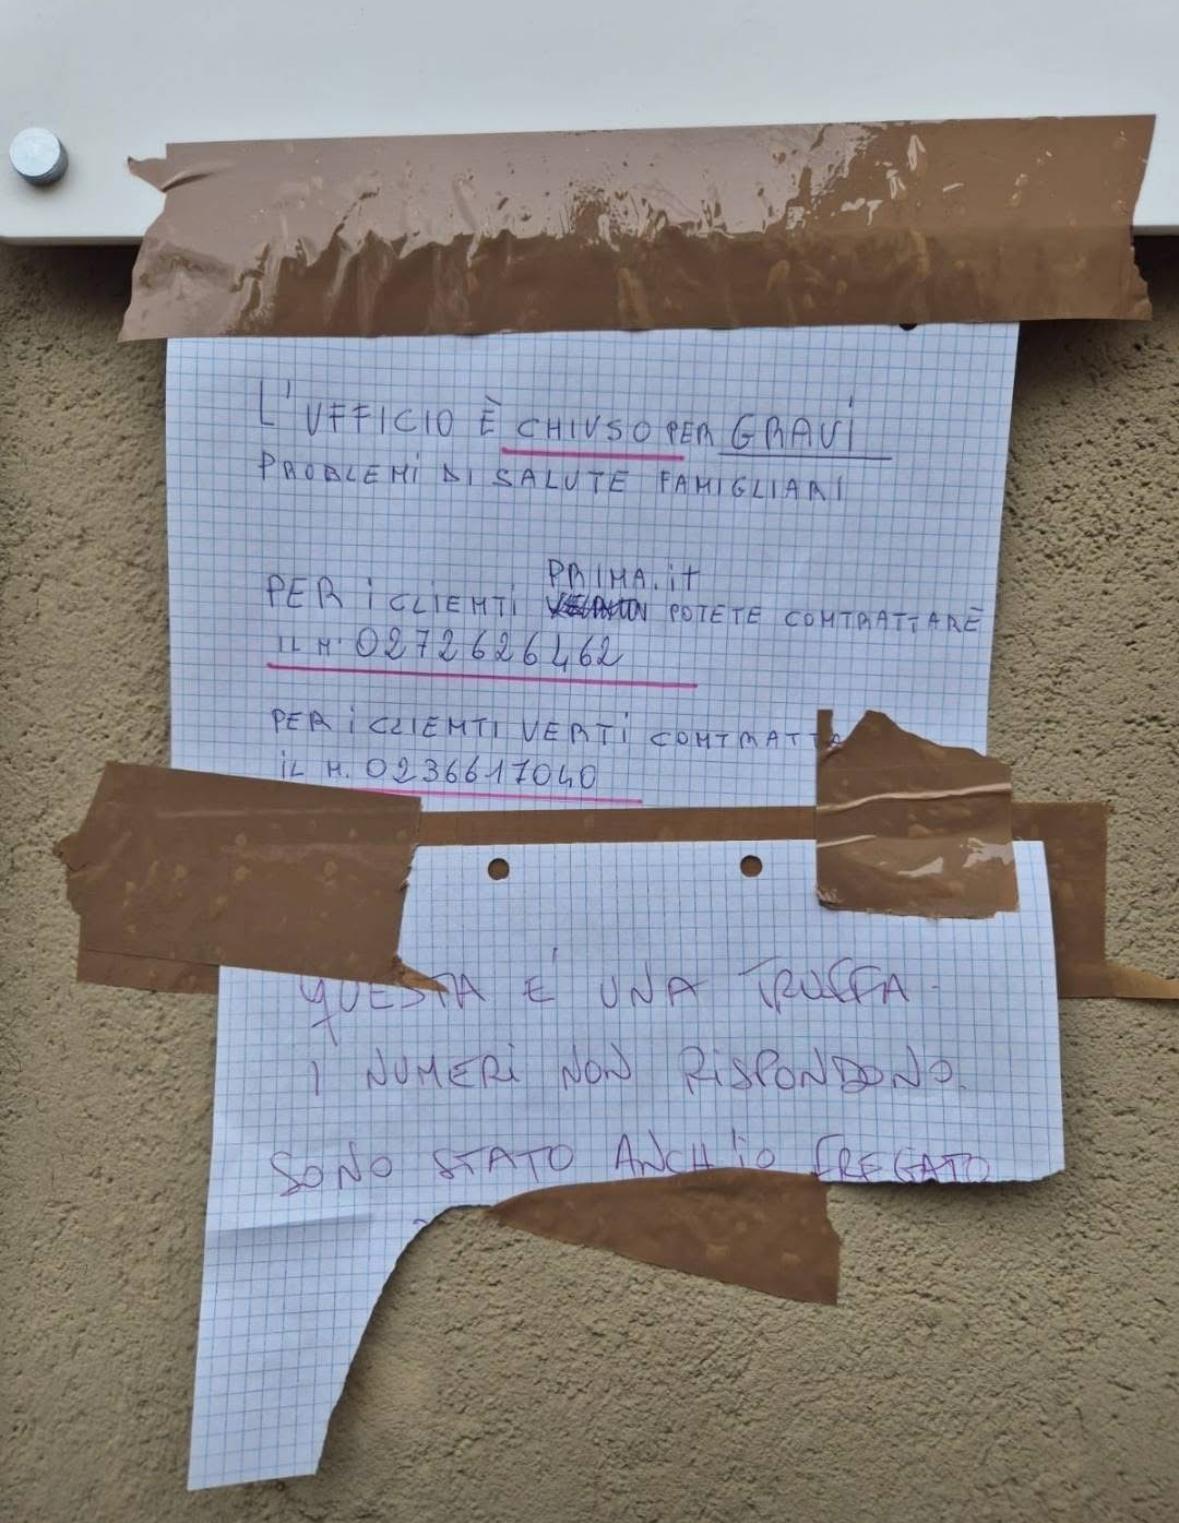 L'UFFICIO È CHIUSO PER GRAVI
PROBLEMI DI SALUTE FAMIGLIARI
PRIMA.it
PER i CLIENTI POTETE CONTRATTARE
IL N. 0272626462
PER i CLIENTI VERTI CONTRATTA
iL N. 0236617040
QUESTA E' UNA TRUFFA
I NUMERI NON RISPONDONO.
SONO STATO ANCH'IO FREGATO